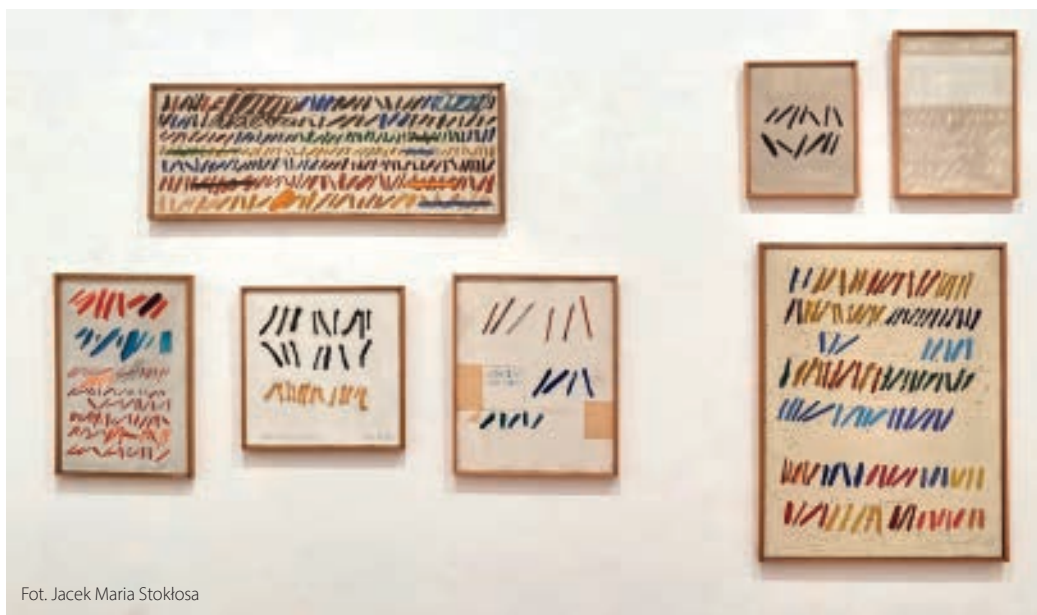 Fot. Jacek Maria Stokłosa